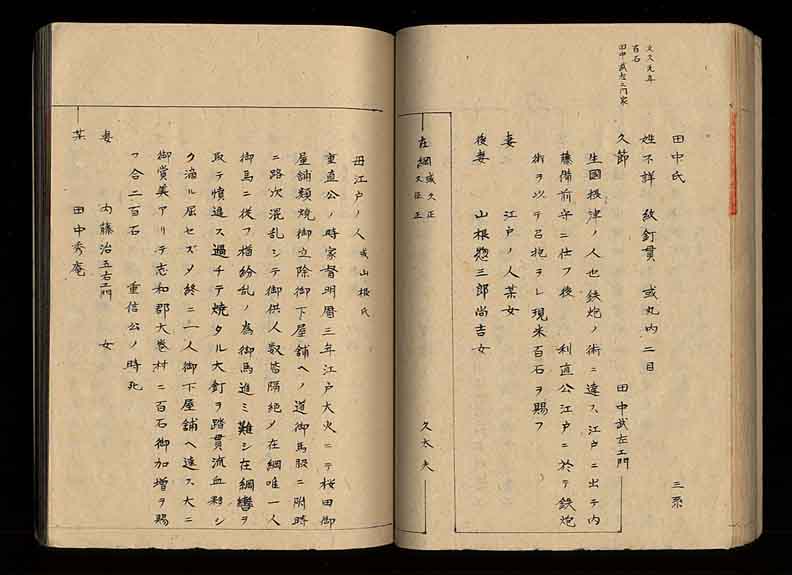 文久元年
百石
田中武左エ門家
田中氏 三系
姓不詳 紋釘貫 或丸内二目
久節 田中武左エ門
生国摂津ノ人也鉄炮ノ術ニ達ス江戸ニ出テ内
藤備前守ニ仕フ後 利直公江戸ニ於テ鉄炮
術ヲ以テ召抱ラレ現米百石ヲ賜フ
妻 江戸ノ人某女
後妻 山根惣三郎尚吉女
在綱 或久正 久臣正 久太夫
母江戸ノ人 或山根氏
重直公ノ時家督明暦三年江戸大火ニテ桜田御
屋舗類焼御立除御下屋舗ヘノ道御馬脇ニ附時
ニ路次混乱シテ御供人数皆隔絶メ在綱唯一人
御馬ニ従フ猶紛乱ノ為御馬進ミ難シ在綱轡ヲ
取テ憤進ス過チテ焼タル大釘ヲ踏貫流血夥シ
ク滴ル屈セズメ終ニ一人御下屋舗ヘ達ス大ニ
御賞美アリテ志和郡大巻村ニ百石御加増ヲ賜
フ合二百石 重信公ノ時死
妻 内藤治五右エ門女
某 田中秀庵